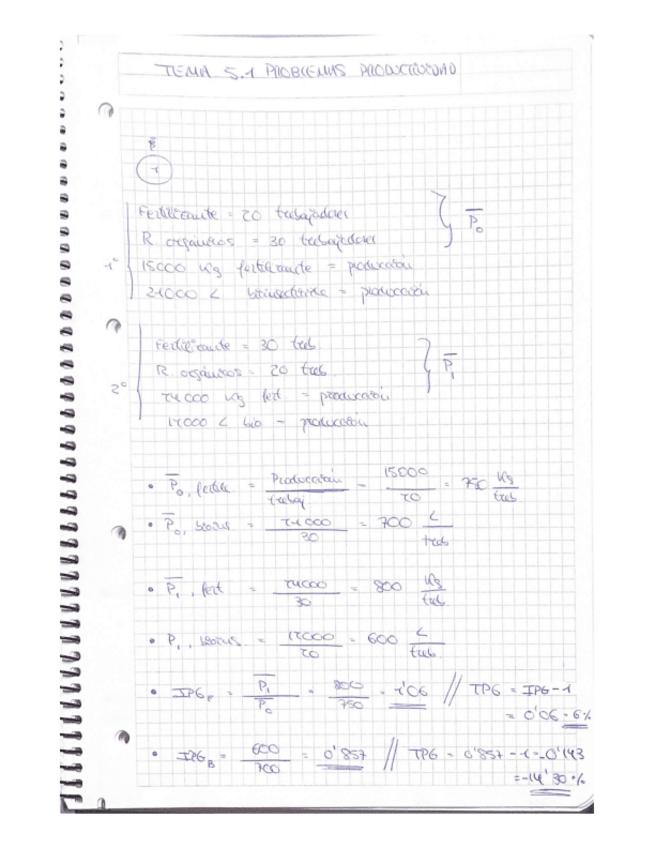 TEMA 5.1 PROBLEMAS PRODUCTIVIDAD
1
Fertilizante = 20 trabajadores
R orgánicos = 30 trabajadores } P̅₀
1º 15000 Kg fertilizante = producción
21000 L bioinsecticida = producción
Fertilizante = 30 trab.
R. orgánicos = 20 trab. } P̅₁
2º 24000 Kg fert = producción
12000 L bio = producción
• P̅₀, fertiliz = Producción / trabaj = 15000 / 20 = 750 Kg / trab
• P̅₀, bioins = 21000 / 30 = 700 L / trab
• P̅₁, fert = 24000 / 30 = 800 Kg / trab
• P₁, bioins = 12000 / 20 = 600 L / trab
• IPG_F = P̅₁ / P̅₀ = 800 / 750 = 1'06 // TPG = IPG - 1
= 0'06 = 6%
• IPG_B = 600 / 700 = 0'857 // TPG = 0'857 - 1 = -0'143
= -14'30%